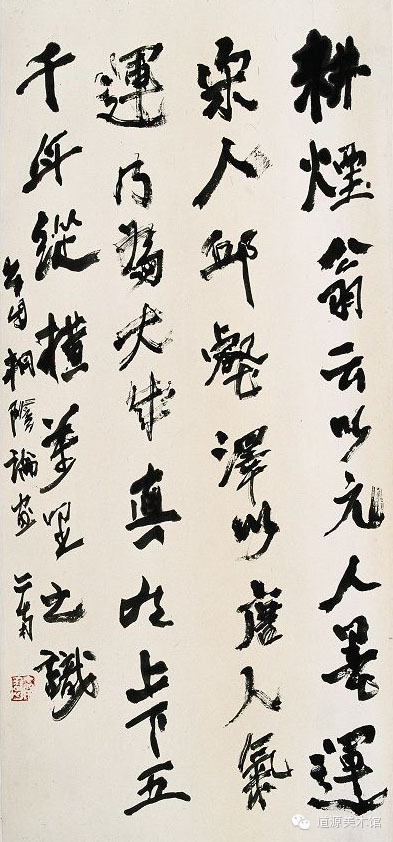 耕煙翁云以元人墨運
宋人邱壑澤以唐人氣
運乃為大成真有上下五
千年縱橫萬里之識
桐陰論畫
道源美术馆